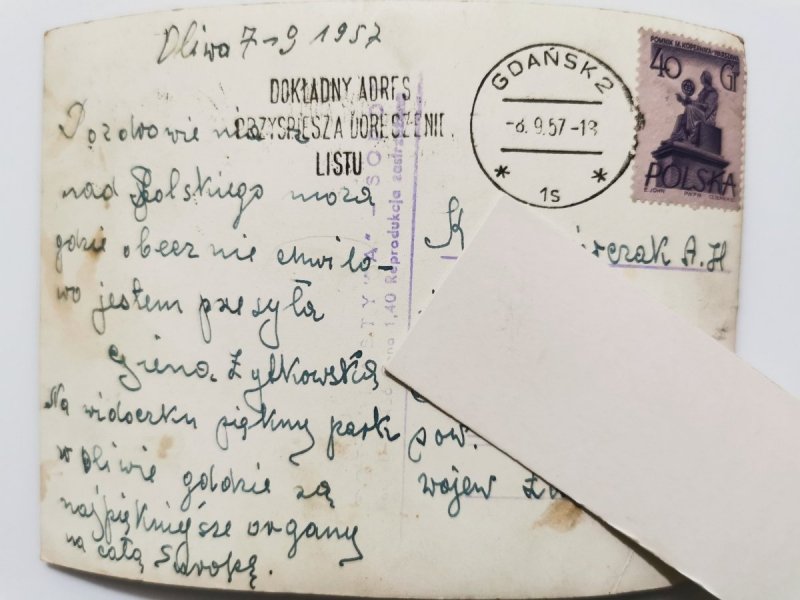 Oliwa 7-9 1957
DOKŁADNY ADRES
PRZYSPIESZA DORĘCZENIE
LISTU
GDAŃSK 2
-8.9.57-18
1s
POMNIK M. KOPERNIKA WARSZAWA
40 GR
POLSKA
Pozdrowienia z
nad Polskiego moża
gdzie obecznie chwilo-
wo jestem przesyła
Żytkowską
Na widoczku piękny park
w Oliwie gdzie są
najpiękniejsze organy
na całą Europę.
1,40 Reprodukcja
K
A. H
pow.
wojew